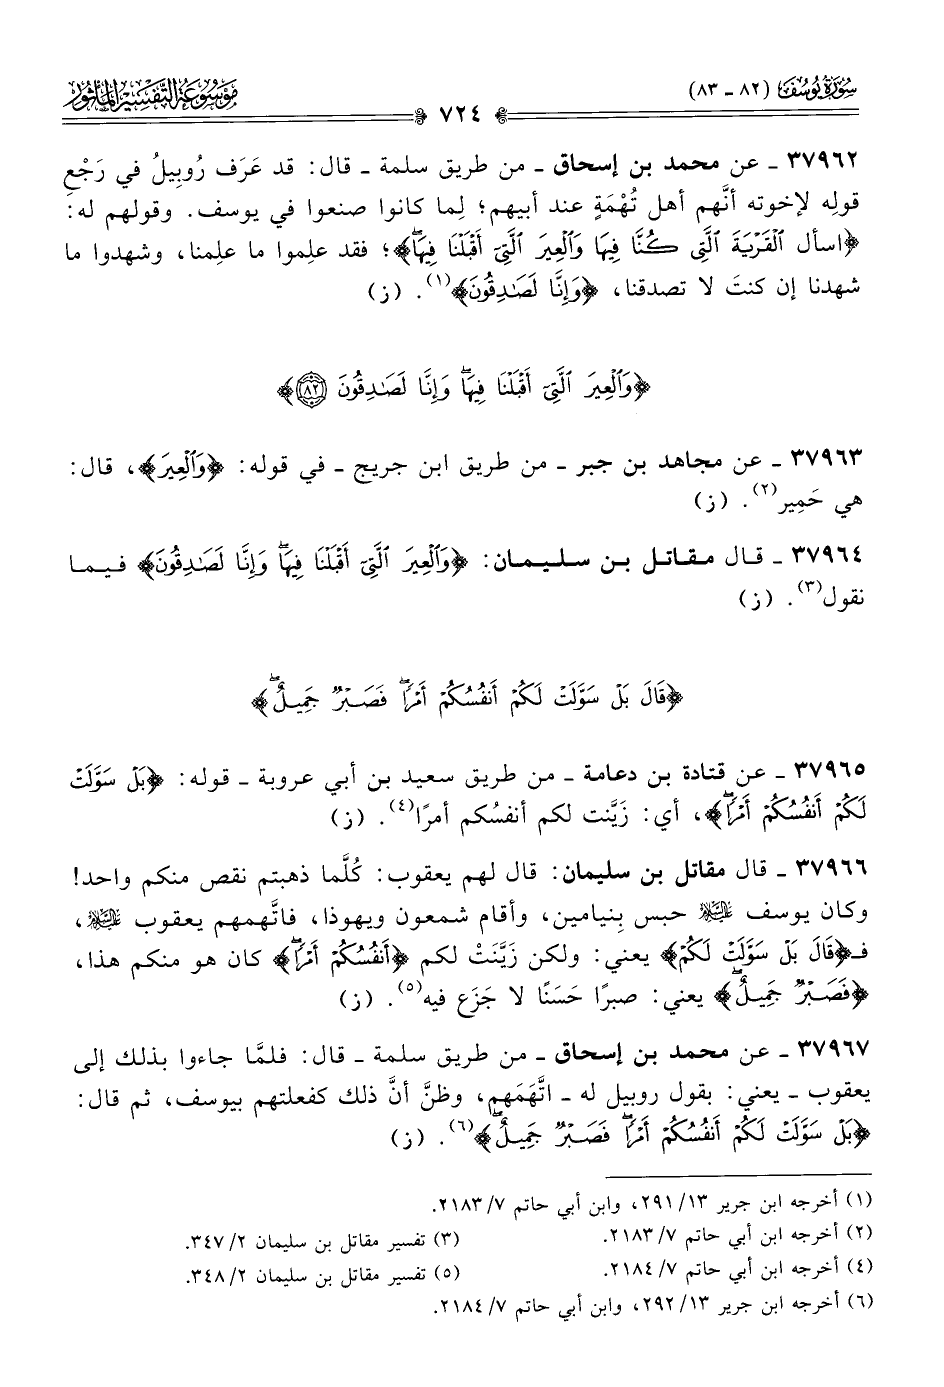 سُورَةُ يُوسُفَ (٨٢ - ٨٣)
٧٢٤
مَوْسُوعَة التَّفْسِيرِ المَأْثُور
٣٧٩٦٢ - عن محمد بن إسحاق - من طريق سلمة - قال: قد عَرَف رُوبِيلُ في رَجْعِ
قولِه لإخوته أنَّهم أهل تُهْمَةٍ عند أبيهم؛ لِما كانوا صنعوا في يوسف. وقولهم له:
﴿اسأل ٱلْقَرْيَةَ ٱلَّتِى كُنَّا فِيهَا وَٱلْعِيرَ ٱلَّتِىٓ أَقْبَلْنَا فِيهَاۖ﴾؛ فقد علِموا ما علِمنا، وشهدوا ما
شهدنا إن كنتَ لا تصدقنا، ﴿وَإِنَّا لَصَـٰدِقُونَ﴾(١). (ز)
﴿وَٱلْعِيرَ ٱلَّتِىٓ أَقْبَلْنَا فِيهَاۖ وَإِنَّا لَصَـٰدِقُونَ ٨٢﴾
٣٧٩٦٣ - عن مجاهد بن جبر - من طريق ابن جريج - في قوله: ﴿وَٱلْعِيرَ﴾، قال:
هي حَمِير(٢). (ز)
٣٧٩٦٤ - قال مقاتل بن سليمان: ﴿وَٱلْعِيرَ ٱلَّتِىٓ أَقْبَلْنَا فِيهَاۖ وَإِنَّا لَصَـٰدِقُونَ﴾ فيما
نقول(٣). (ز)
﴿قَالَ بَلْ سَوَّلَتْ لَكُمْ أَنفُسُكُمْ أَمْرًاۖ فَصَبْرٌ جَمِيلٌۖ﴾
٣٧٩٦٥ - عن قتادة بن دعامة - من طريق سعيد بن أبي عروبة - قوله: ﴿بَلْ سَوَّلَتْ
لَكُمْ أَنفُسُكُمْ أَمْرًاۖ﴾، أي: زَيَّنت لكم أنفسُكم أمرًا(٤). (ز)
٣٧٩٦٦ - قال مقاتل بن سليمان: قال لهم يعقوب: كُلَّما ذهبتم نقص منكم واحد!
وكان يوسف عليه السلام حبس بِنيامين، وأقام شمعون ويهوذا، فاتَّهمهم يعقوب عليه السلام،
فـ﴿قَالَ بَلْ سَوَّلَتْ لَكُمْ﴾ يعني: ولكن زَيَّنَتْ لكم ﴿أَنفُسُكُمْ أَمْرًاۖ﴾ كان هو منكم هذا،
﴿فَصَبْرٌ جَمِيلٌۖ﴾ يعني: صبرًا حَسَنًا لا جَزَع فيه(٥). (ز)
٣٧٩٦٧ - عن محمد بن إسحاق - من طريق سلمة - قال: فلمَّا جاءوا بذلك إلى
يعقوب - يعني: بقول روبيل له - اتَّهَمَهم، وظنَّ أنَّ ذلك كفعلتهم بيوسف، ثم قال:
﴿بَلْ سَوَّلَتْ لَكُمْ أَنفُسُكُمْ أَمْرًاۖ فَصَبْرٌ جَمِيلٌۖ﴾(٦). (ز)
(١) أخرجه ابن جرير ١٣/ ٢٩١، وابن أبي حاتم ٧/ ٢١٨٣.
(٢) أخرجه ابن أبي حاتم ٧/ ٢١٨٣. (٣) تفسير مقاتل بن سليمان ٢/ ٣٤٧.
(٤) أخرجه ابن أبي حاتم ٧/ ٢١٨٤. (٥) تفسير مقاتل بن سليمان ٢/ ٣٤٨.
(٦) أخرجه ابن جرير ١٣/ ٢٩٢، وابن أبي حاتم ٧/ ٢١٨٤.